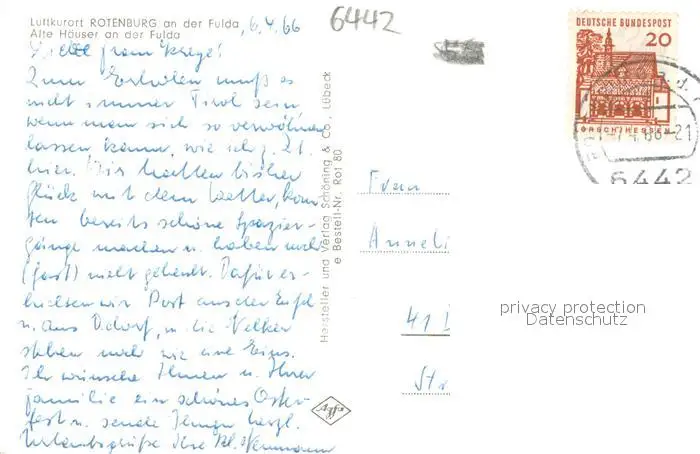 Luftkurort ROTENBURG an der Fulda, 6.4.66
Alte Häuser an der Fulda
Liebe Frau
Zum Erholen muß es
nicht immer Tirol sein
wenn man sich so verwöhnen
lassen kann, wie ich z. Zt.
hier. Wir hatten bisher
Glück mit dem Wetter, konn-
ten bereits schöne Spazier-
gänge machen u. haben noch
(fast) nicht geheizt. Dafür er-
hielten wir Post aus der Eifel
u. aus Ddorf, u. die Nelken
stehen noch wie eine Eins.
Ich wünsche Ihnen u. Ihrer
Familie ein schönes Oster-
fest u. sende Ihnen herzl.
Urlaubsgrüße Ihre
Hersteller und Verlag Schöning & Co., Lübeck
e Bestell-Nr. Rot 80
Agfa
6442
DEUTSCHE BUNDESPOST
20
LORSCH/HESSEN
66-21
6442
Frau
Anneli
41
Str
privacy protection
Datenschutz